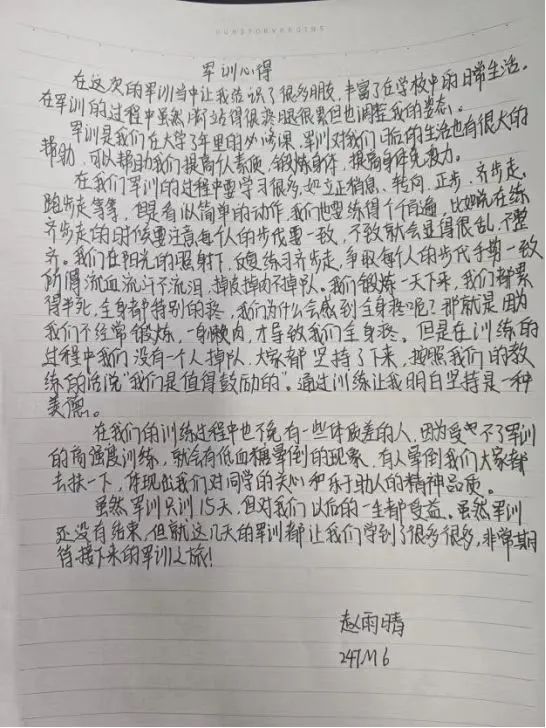 军训心得
在这次的军训当中让我结识了很多朋友,丰富了在学校中的日常生活。
在军训的过程中虽然当时站得很疼腿很累但也调整我的姿态。
军训是我们在大学3年里的必修课,军训对我们日后的生活也有很大的
帮助,可以帮助我们提高个人素质,锻炼身体,提高身体免疫力。
在我们军训的过程中要学习很多,如立正稍息、转向、正步、齐步走、
跑步走等等,但是看似简单的动作,我们也要练得个百遍,比如说在练
齐步走的时候要注意每个人的步伐要一致,不致就会显得很乱,不整
齐。我们在阳光的照射下,反复练习齐步走,争取每个人的步伐手期一致
所谓流血流汗不流泪,掉皮掉肉不掉队。我们锻炼一天下来,我们都累
得半死,全身都特别的疼,我们为什么会感到全身疼呢?那就是因为
我们不经常锻炼,一身懒肉,才导致我们全身疼。但是在训练的
过程中我们没有一个人掉队,大家都坚持了下来,按照我们的教
练的话说“我们是值得鼓励的”。通过训练让我明白坚持是一种
美德。
在我们的训练过程中也不免有一些体质差的人,因为受不了军训
的高强度训练,就会有低血糖晕倒的现象,有人晕倒我们大家都
去扶一下,体现出我们对同学的关心和乐于助人的精神品质。
虽然军训只训15天,但对我们以后的一生都受益。虽然军训
还没有结束,但就这几天的军训都让我们学到了很多很多,非常期
待接下来的军训之旅!
赵雨晴